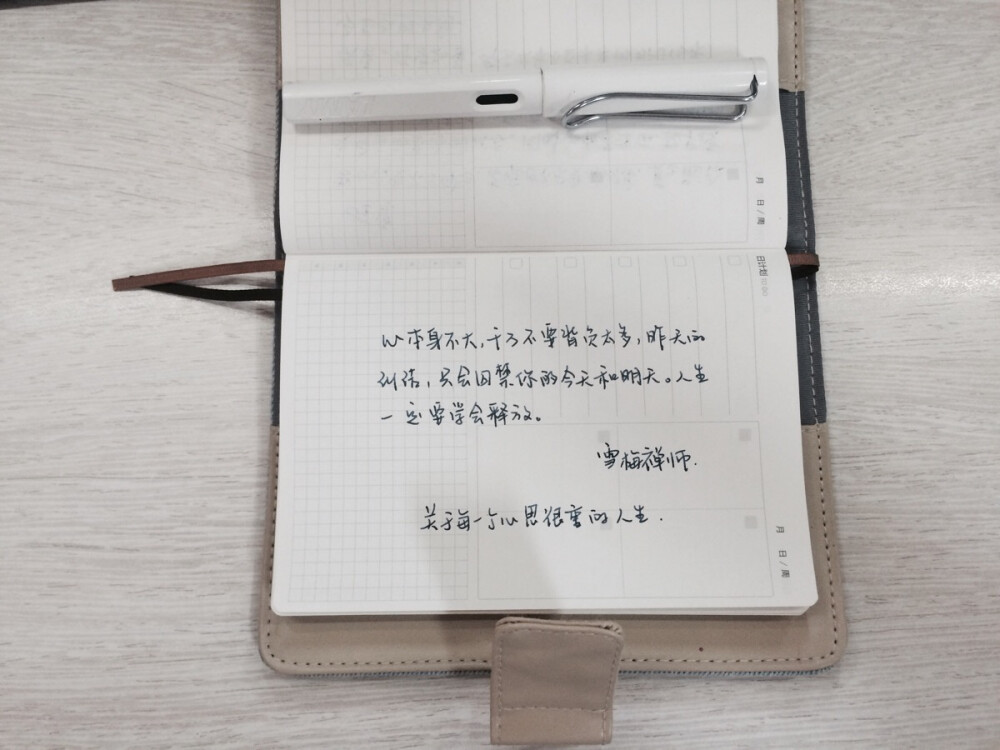 月 日/周
日计划
心本身不大,千万不要背负太多,昨天的
纠结,只会囚禁你的今天和明天。人生
一定要学会释放。
雪梅禅师.
关于每一个心思很重的人生.
月 日/周